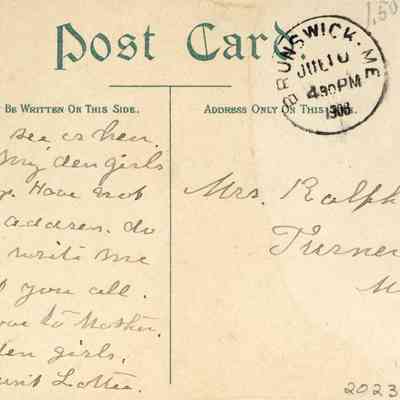 1.50
Post Card
BRUNSWICK. ME.
JUL 10
4 30 PM
1908
Be Written On This Side.
Address Only On This Side.
see
My girls
Have not
address. do
write me
you all.
to Mother.
girls.
Lottie.
Mrs. Ralph
Turner
M
2023